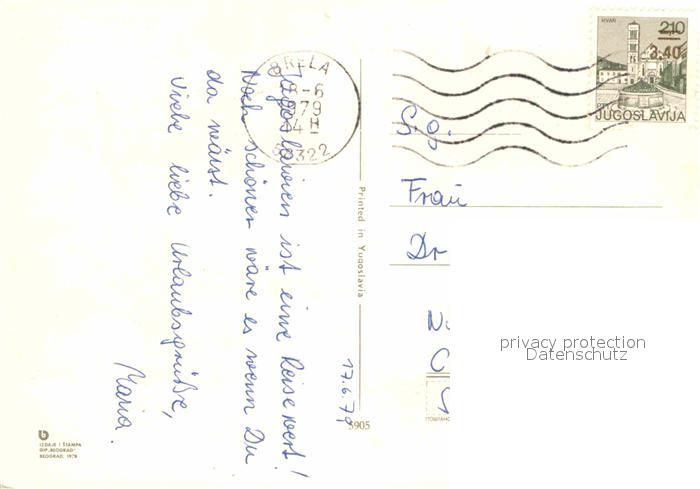 Jugoslawien ist eine Reise wert!
Noch schöner wäre es wenn Du
da wärst.
Viele liebe Urlaubsgrüße,
Maria.
17.6.79
BRELA
8-6
1979
04H
58322
HVAR
2,10
3.40
JUGOSLAVIJA
S.g.
Frau
Dr
C
Printed in Yugoslavia
5905
privacy protection
Datenschutz
IZDAJE I ŠTAMPA
GIP „BEOGRAD"
BEOGRAD, 1978